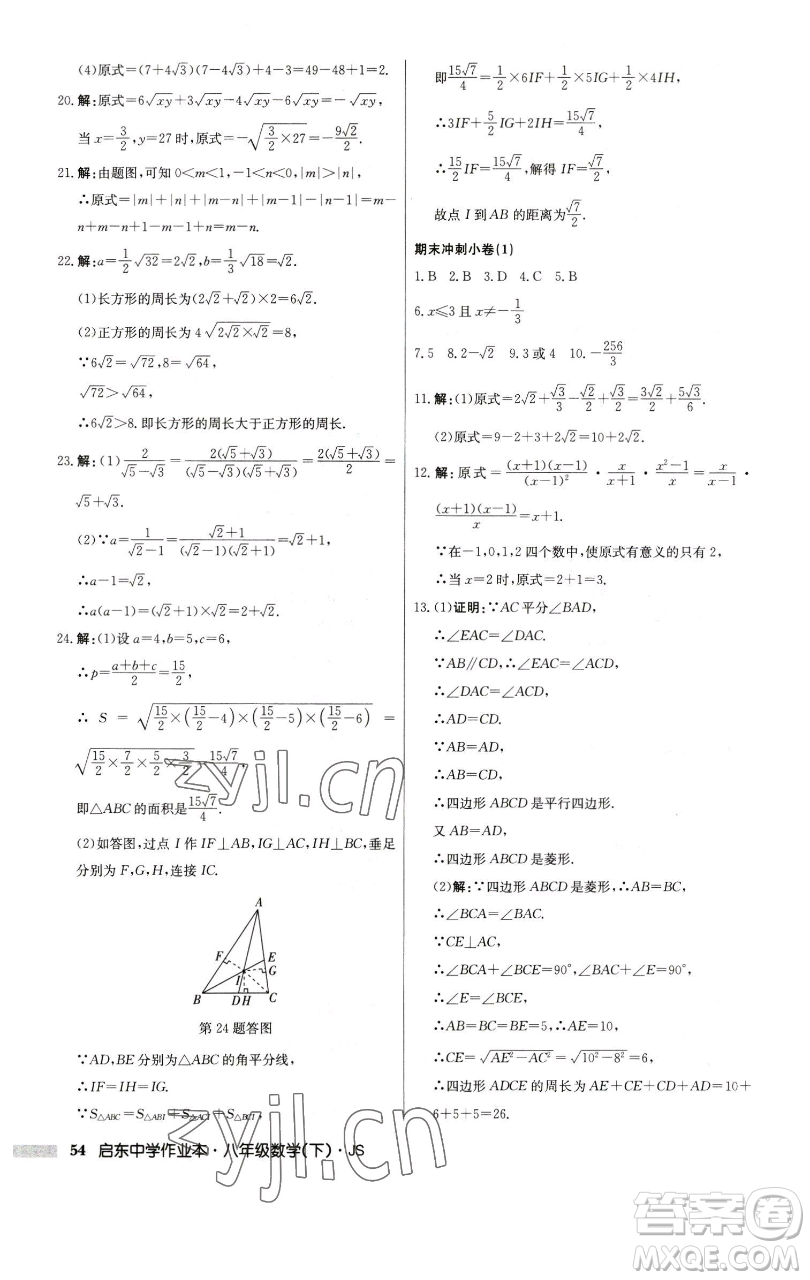 (4)原式=(7+4√3)(7-4√3)+4-3=49-48+1=2.
20.解:原式=6√xy+3√xy-4√xy-6√xy=-√xy,
当x=3/2,y=27时,原式=-√(3/2×27)=-9√2/2.
21.解:由题图,可知0<m<1,-1<n<0,|m|>|n|,
∴原式=|m|+|n|+|m-n|+|m-1|-|n-1|=m-
n+m-n+1-m-1+n=m-n.
22.解:a=1/2√32=2√2,b=1/3√18=√2.
(1)长方形的周长为(2√2+√2)×2=6√2.
(2)正方形的周长为4√(2√2×√2)=8,
∵6√2=√72,8=√64,
√72>√64,
∴6√2>8.即长方形的周长大于正方形的周长.
23.解:(1)2/(√5-√3)=2(√5+√3)/((√5-√3)(√5+√3))=2(√5+√3)/2=
√5+√3.
(2)∵a=1/(√2-1)=(√2+1)/((√2-1)(√2+1))=√2+1,
∴a-1=√2,
∴a(a-1)=(√2+1)×√2=2+√2.
24.解:(1)设a=4,b=5,c=6,
∴p=(a+b+c)/2=15/2,
∴S=√(15/2×(15/2-4)×(15/2-5)×(15/2-6))=
√(15/2×7/2×5/2×3/2)=15√7/4,
即△ABC的面积是15√7/4.
(2)如答图,过点I作IF⊥AB,IG⊥AC,IH⊥BC,垂足
分别为F,G,H,连接IC.
A
F
E
I
G
B
D
H
C
第24题答图
∵AD,BE分别为△ABC的角平分线,
∴IF=IH=IG.
∵S△ABC=S△ABI+S△ACI+S△BCI,
即15√7/4=1/2×6IF+1/2×5IG+1/2×4IH,
∴3IF+5/2IG+2IH=15√7/4,
∴15/2IF=15√7/4,解得IF=√7/2,
故点I到AB的距离为√7/2.
期末冲刺小卷(1)
1.B 2.B 3.D 4.C 5.B
6.x≤3且x≠-1/3
7.5 8.2-√2 9.3或4 10.-256/3
11.解:(1)原式=2√2+√3/3-√2/2+√3/2=3√2/2+5√3/6.
(2)原式=9-2+3+2√2=10+2√2.
12.解:原式=(x+1)(x-1)/(x-1)²·x/(x+1)·(x²-1)/x=x/(x-1)·
(x+1)(x-1)/x=x+1.
∵在-1,0,1,2四个数中,使原式有意义的只有2,
∴当x=2时,原式=2+1=3.
13.(1)证明:∵AC平分∠BAD,
∴∠EAC=∠DAC.
∵AB∥CD,∴∠EAC=∠ACD.
∴∠DAC=∠ACD,
∴AD=CD.
∵AB=AD,
∴AB=CD,
∴四边形ABCD是平行四边形.
又AB=AD,
∴四边形ABCD是菱形.
(2)解:∵四边形ABCD是菱形,∴AB=BC,
∴∠BCA=∠BAC.
∵CE⊥AC,
∴∠BCA+∠BCE=90°,∠BAC+∠E=90°,
∴∠E=∠BCE,
∴AB=BC=BE=5,∴AE=10,
∴CE=√(AE²-AC²)=√(10²-8²)=6,
∴四边形ADCE的周长为AE+CE+CD+AD=10+
6+5+5=26.
54 启东中学作业本·八年级数学(下)·JS
zyjl.cn
zyjl.cn
答案圈
MXQE.COM